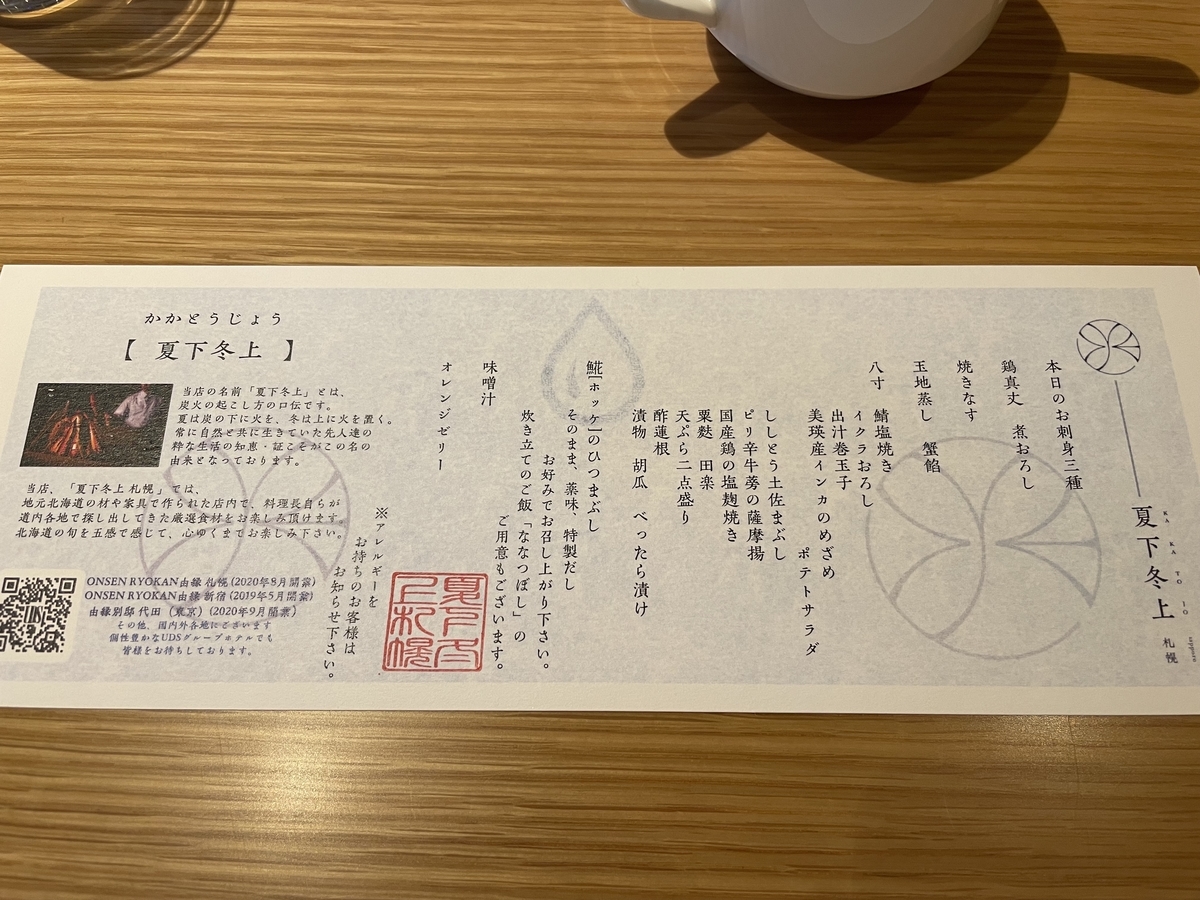 夏下冬上 札幌
KA KA TO JO
sapporo
本日のお刺身三種
鶏真丈 煮おろし
焼きなす
玉地蒸し 蟹餡
八寸 鯖塩焼き
イクラおろし
出汁巻玉子
美瑛産インカのめざめ
ポテトサラダ
ししとう土佐まぶし
ピリ辛牛蒡の薩摩揚
国産鶏の塩麹焼き
粟麩 田楽
天ぷら二点盛り
酢蓮根
漬物 胡瓜 べったら漬け
𩸽[ホッケ]のひつまぶし
そのまま、薬味、特製だし
お好みでお召し上がり下さい。
炊き立てのご飯「ななつぼし」の
ご用意もございます。
味噌汁
オレンジゼリー
夏下冬上札幌
※アレルギーを
お持ちのお客様は
お知らせ下さい。
かかとうじょう
【 夏下冬上 】
当店の名前「夏下冬上」とは、
炭火の起こし方の口伝です。
夏は炭の下に火を、冬は上に火を置く。
常に自然と共に生きていた先人達の
粋な生活の知恵・証こそがこの名の
由来となっております。
当店、「夏下冬上 札幌」では、
地元北海道の材や家具で作られた店内で、料理長自らが
道内各地で探し出してきた厳選食材をお楽しみ頂けます。
北海道の旬を五感で感じて、心ゆくまでお楽しみ下さい。
ONSEN RYOKAN由縁 札幌(2020年8月開業)
ONSEN RYOKAN由縁 新宿(2019年5月開業)
由縁別邸 代田（東京）(2020年9月開業)
その他、国内外各地にございます
個性豊かなUDSグループホテルでも
皆様をお待ちしております。